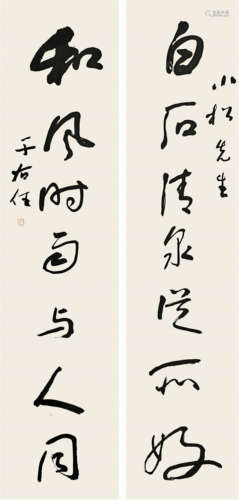 小松先生
白石清泉從所好
和風時雨與人同
于右任